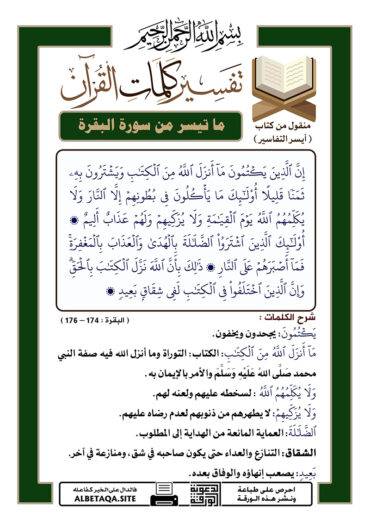 بسم الله الرحمن الرحيم
تفسير كلمات القرآن
ما تيسر من سورة البقرة
منقول من كتاب
( أيسر التفاسير )
إِنَّ ٱلَّذِينَ يَكۡتُمُونَ مَآ أَنزَلَ ٱللَّهُ مِنَ ٱلۡكِتَٰبِ وَيَشۡتَرُونَ بِهِۦ
ثَمَنٗا قَلِيلًا أُوْلَٰٓئِكَ مَا يَأۡكُلُونَ فِي بُطُونِهِمۡ إِلَّا ٱلنَّارَ وَلَا
يُكَلِّمُهُمُ ٱللَّهُ يَوۡمَ ٱلۡقِيَٰمَةِ وَلَا يُزَكِّيهِمۡ وَلَهُمۡ عَذَابٌ أَلِيمٌ ۞
أُوْلَٰٓئِكَ ٱلَّذِينَ ٱشۡتَرَوُاْ ٱلضَّلَٰلَةَ بِٱلۡهُدَىٰ وَٱلۡعَذَابَ بِٱلۡمَغۡفِرَةِۚ
فَمَآ أَصۡبَرَهُمۡ عَلَى ٱلنَّارِ ۞ ذَٰلِكَ بِأَنَّ ٱللَّهَ نَزَّلَ ٱلۡكِتَٰبَ بِٱلۡحَقِّۗ
وَإِنَّ ٱلَّذِينَ ٱخۡتَلَفُواْ فِي ٱلۡكِتَٰبِ لَفِي شِقَاقِۭ بَعِيدٖ ۞
شرح الكلمات :
( البقرة : 174 – 176 )
يَكۡتُمُونَ: يجحدون ويخفون.
مَآ أَنزَلَ ٱللَّهُ مِنَ ٱلۡكِتَٰبِ: الكتاب: التوراة وما أنزل الله فيه صفة النبي
محمد صَلَّى اللهُ عَلَيْهِ وَسَلَّمَ والأمر بالإيمان به.
وَلَا يُكَلِّمُهُمُ ٱللَّهُ : لسخطه عليهم ولعنه لهم.
وَلَا يُزَكِّيهِمۡ: لا يطهرهم من ذنوبهم لعدم رضاه عليهم.
ٱلضَّلَٰلَةَ: العماية المانعة من الهداية إلى المطلوب.
الشقاق: التنازع والعداء حتى يكون صاحبه في شق، ومنازعه في آخر.
بَعِيدٖ: يصعب إنهاؤه والوفاق بعده.
احرص على طباعة
ونشر هذه الورقة
فالدال على الخير كفاعله
ALBETAQA.SITE